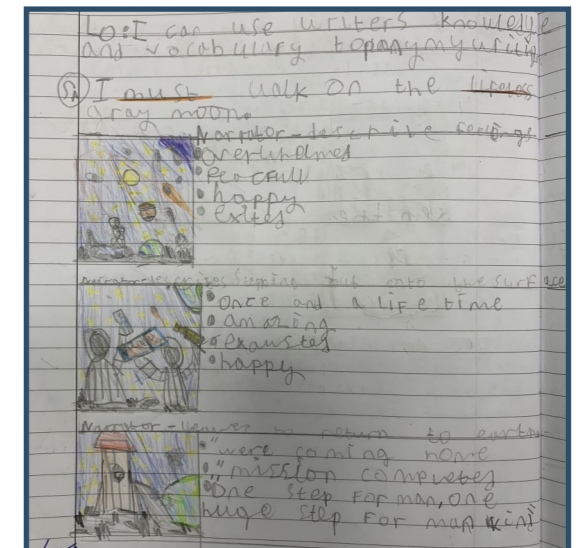 LO:I can use writers knowledge
and vocabulary to my writing
SA I must walk on the lifeless
gray moon.
Narrator-describe feelings
• overwhelmed
• Peacfull
• happy
• exited
Narrator-describes stepping out onto the surface
• Once and a life time
• amazing
• exausted
• happy
Narrator-leaves to return to earth
• "were coming home
• "mission completed
• "One step for man, one
huge step for man kind"